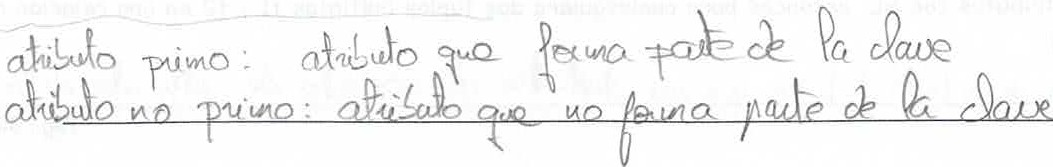 atributo primo: atributo que forma parte de la clave
atributo no primo: atributo que no forma parte de la clave